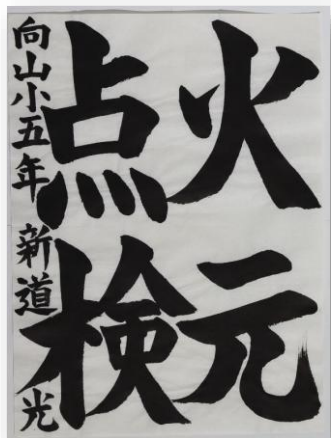 火元
点検
向山小五年 新道 光